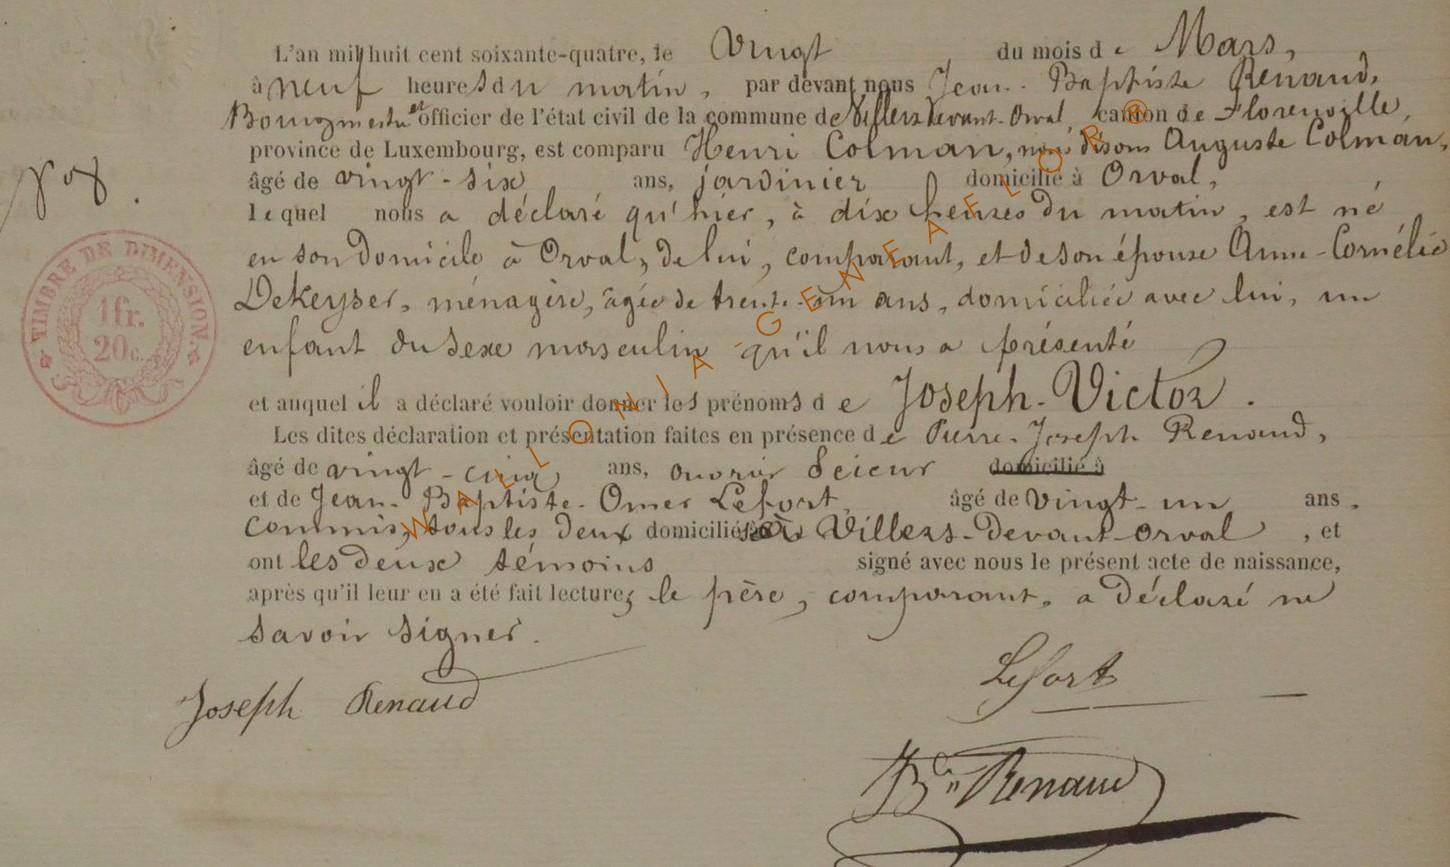 L'an mil huit cent soixante-quatre, le Vingt du mois de Mars,
à neuf heures du matin, par devant nous Jean-Baptiste Renaud,
Bourgmestre et officier de l'état civil de la commune de Villers devant-Orval, canton de Florenville,
province de Luxembourg, est comparu Henri Colman, nous disons Auguste Colman,
âgé de vingt-six ans, jardinier domicilié à Orval,
lequel nous a déclaré qu'hier, à dix heures du matin, est né
en son domicile à Orval, de lui, comparant, et de son épouse Anne-Cornélie
Dekeyser, ménagère, âgée de trente-un ans, domiciliée avec lui, un
enfant du sexe masculin qu'il nous a présenté
et auquel il a déclaré vouloir donner les prénoms de Joseph-Victor.
Les dites déclaration et présentation faites en présence de Pierre-Joseph Renaud,
âgé de vingt-cinq ans, ouvrier Scieur domicilié à
et de Jean-Baptiste-Omer Lefort, âgé de Vingt-un ans,
commis, tous les deux domiciliés à Villers-Devant-Orval, et
ont les deux témoins signé avec nous le présent acte de naissance,
après qu'il leur en a été fait lecture; le père, comparant, a déclaré ne
savoir signer.
N° 8.
TIMBRE DE DIMENSION.
1 fr.
20 c.
Lefort
Joseph Renaud
JBte Renaud
WALLONIA-GENEAFLOR®